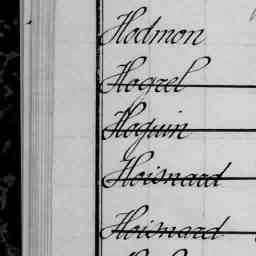 Hodmon
Hogrel
Hoguin
Hoisnard
Hoisnard